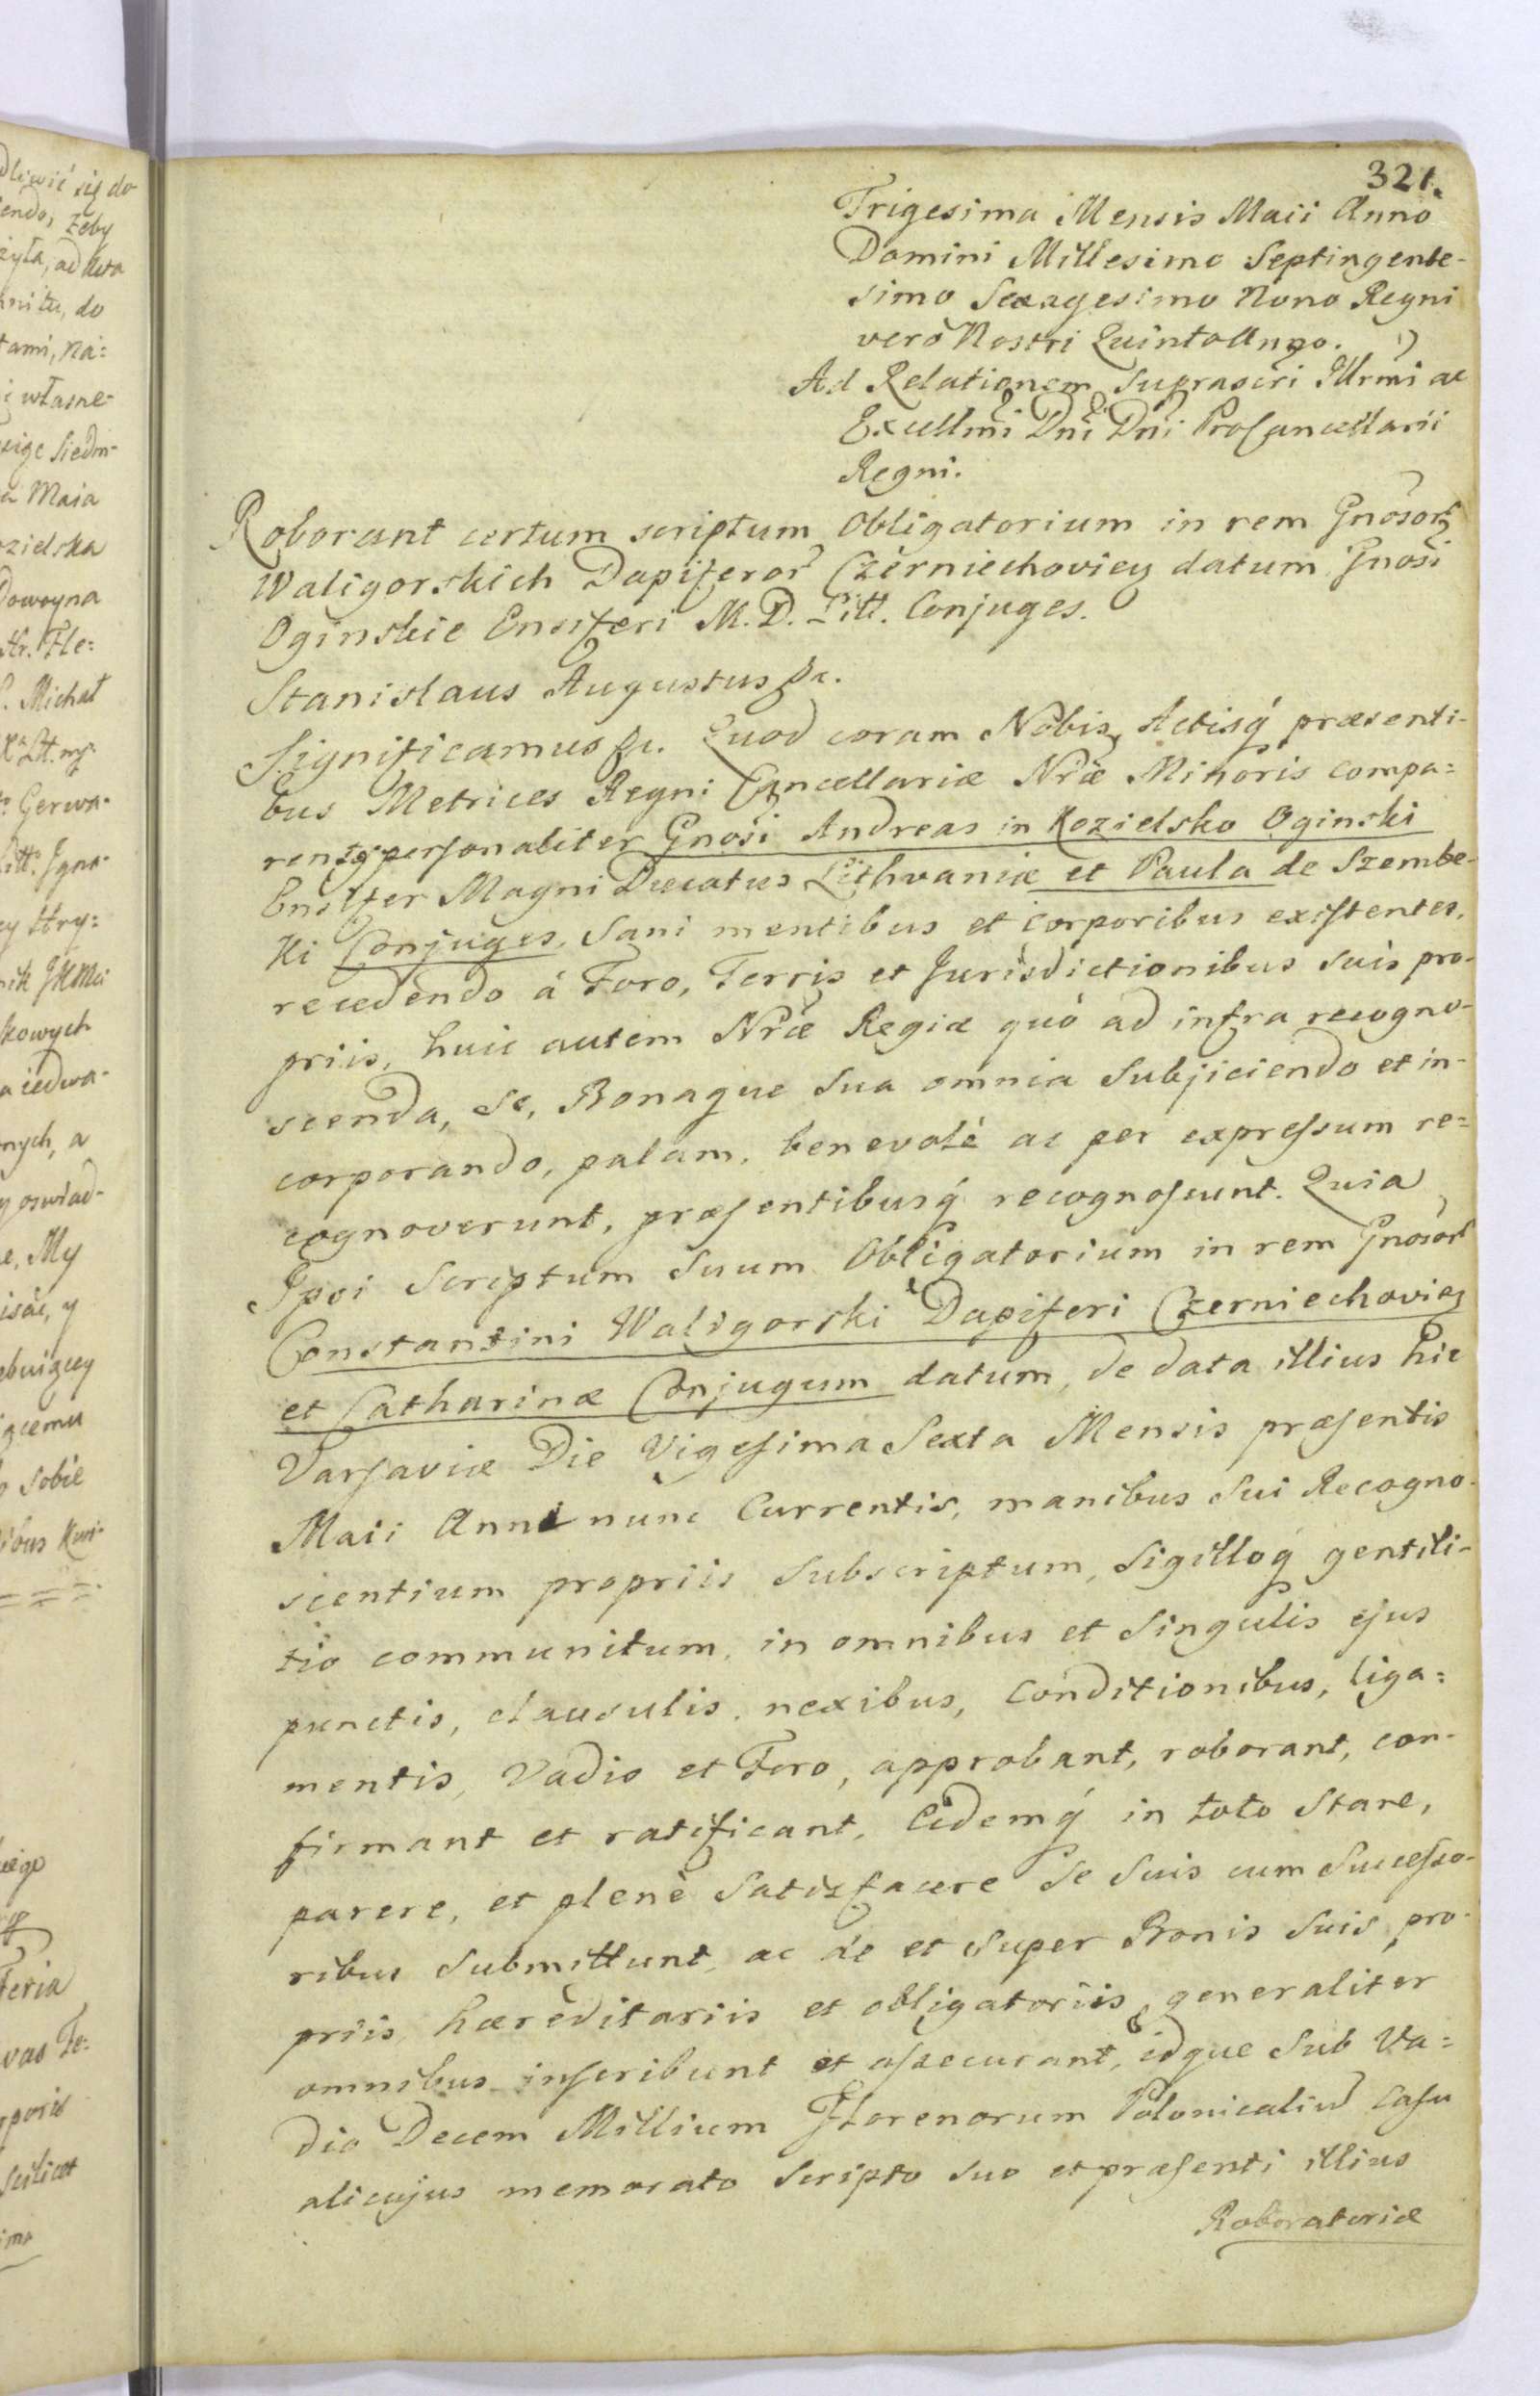 dliwić się do
endo, żeby
żyła, ad Acta
do
tami, na=
własne-
Siedm-
Maia
ozielska
Dowoyna
Str. Fle=
P. Michał
Gerwa-
Litt. Igna-
ey Stry=
nik JKMci
skowych
a iedna-
nych, a
y oswiad-
e, My
isać, y
ebuiącey
iącemu
o sobie
ibus Kuri-
= = =
Feria
vas Fe=
rporis
scilicet
ima
321.
Trigesima Mensis Maii Anno
Domini Millesimo Septingente-
simo Sexagesimo Nono Regni
verò Nostri Quinto Anno.
Ad Relationem Suprascri Illrmi ac
Excellmi Dni Dni ProCancellarii
Regni.
Roborant certum scriptum Obligatorium in rem Gnosorz
Waligorskich Dapiferor Czerniechoviez datum Gnosi
Oginskie Ensiferi M. D. Litt. Conjuges.
Stanislaus Augustus &c.
Significamus &c. Quod coram Nobis, Actisq́ præsenti-
bus Metrices Regni Cancellariæ Nræ Minoris compa=
rentes personaliter Gnosi Andreas in Kozielsko Oginski
Ensifer Magni Ducatus Lithvaniæ et Paula de Szembe-
ki Conjuges, Sani mentibus et corporibus existentes,
recedendo à Foro, Terris et Jurisdictionibus suis pro-
priis, huic autem Nræ Regiæ quò ad infra recogno-
scenda, Se, Bonaque Sua omnia Subjiciendo et in-
corporando, palam, benevolè ac per expressum re=
cognoverunt, præsentibusq́ recognoscunt. Quia
Ipsi Scriptum Suum Obligatorium in rem Gnosor
Constantini Waligorski Dapiferi Czerniechoviez
et Catharinæ Conjugum datum, de data illius hic
Varsaviæ Die Vigesima Sexta Mensis præsentis
Maii Anni nunc Currentis, manibus Sui Recogno-
scentium propriis Subscriptum, Sigilloq́ gentili-
tio communitum, in omnibus et Singulis ejus
punctis, clausulis, nexibus, Conditionibus, liga=
mentis, Vadio et Foro, approbant, roborant, con-
firmant et ratificant, Eidemq́ in toto Stare,
parere, et plenè Satisfacere Se Suis cum Successo-
ribus Submittunt, ac de et Super Bonis Suis pro-
priis, hæreditariis et obligatoriis, generaliter
omnibus inscribunt et assecurant, idque Sub Va=
dio Decem Millium Florenorum Polonicaliu Casu
alicujus memorato Scripto Suo et præsenti illius
Roboratoriæ